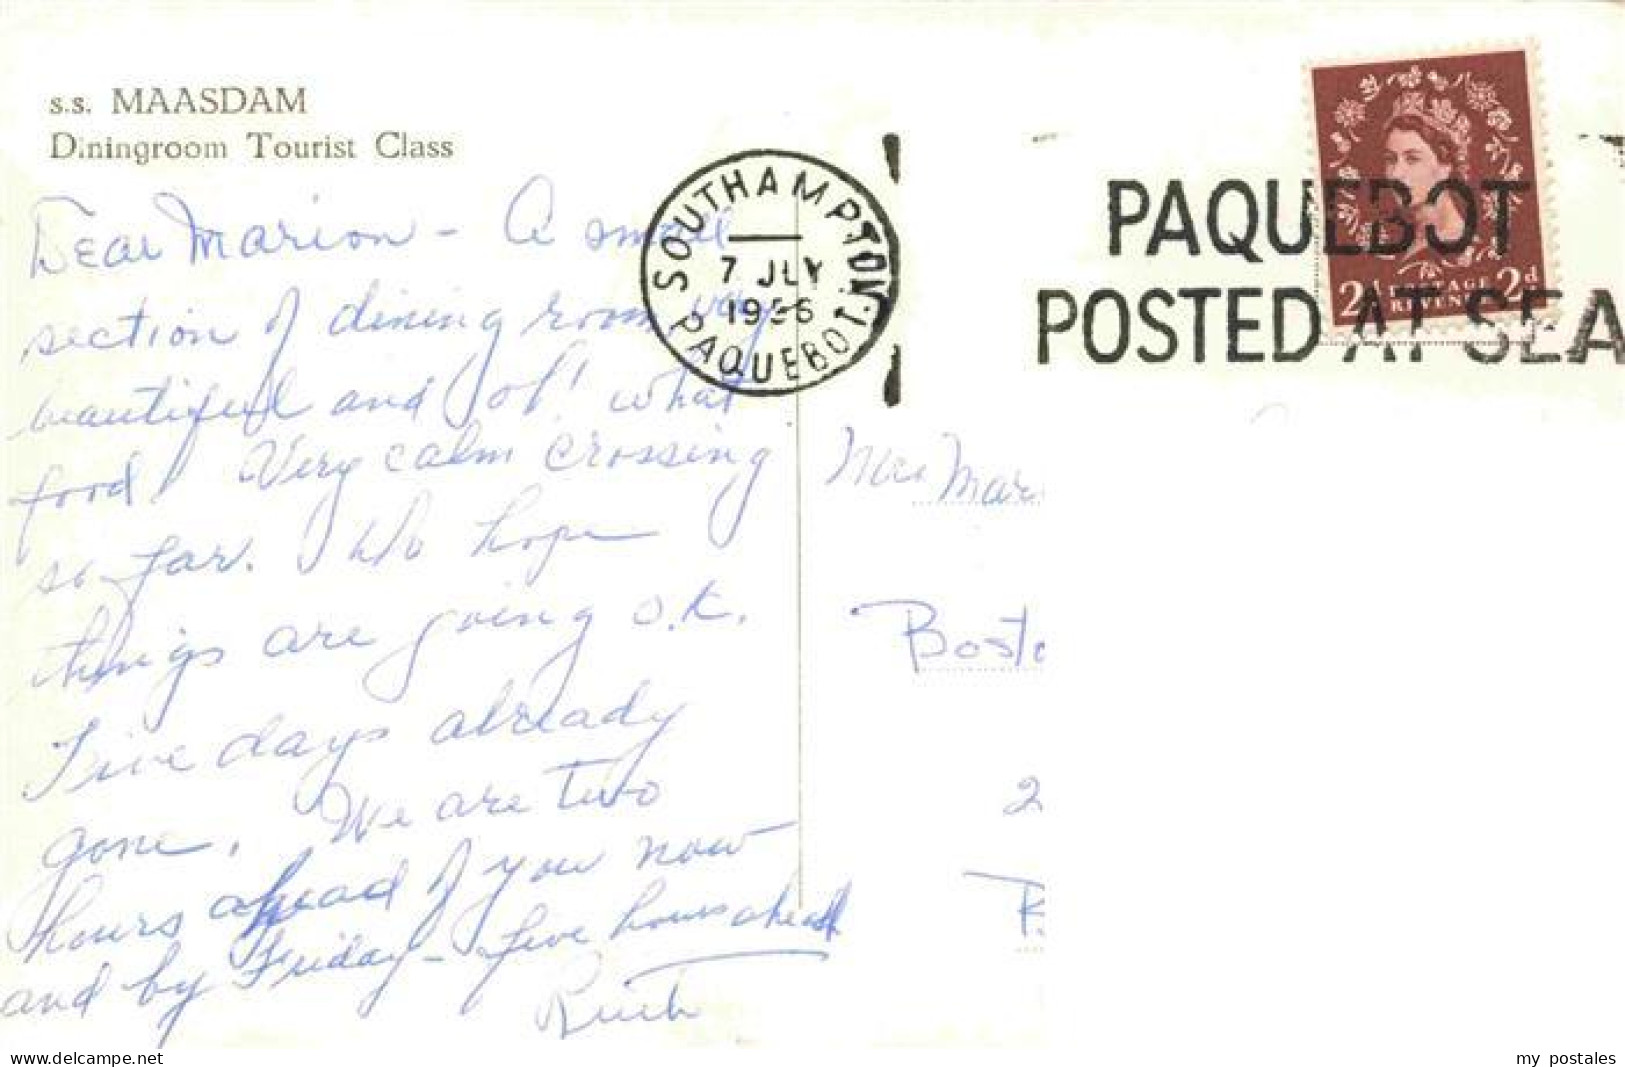 s.s. MAASDAM
Diningroom Tourist Class
Dear Marion - A small
section of dining room very
beautiful and oh! what
food! Very calm crossing
so far. Do hope
things are going o.k.
Five days already
gone. We are two
hours ahead of you now
and by Friday - five hours ahead
Ruth
SOUTHAMPTON.
7 JLY
1956
PAQUEBOT.
PAQUEBOT
POSTED AT SEA
2d POSTAGE 2d
REVENUE
Mrs Mar
Bosto
2
my postales
www.delcampe.net